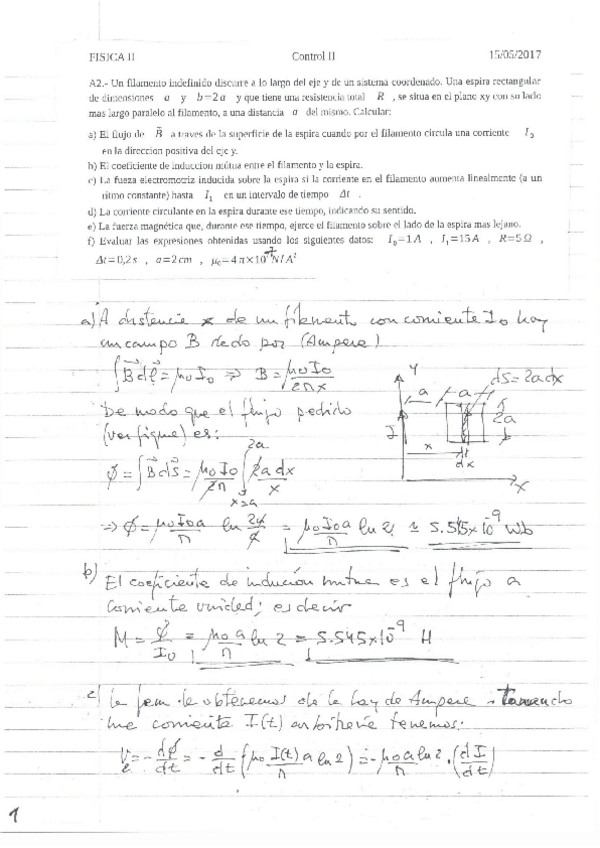 FISICA II Control II 15/05/2017
A2.- Un filamento indefinido discurre a lo largo del eje y de un sistema coordenado. Una espira rectangular
de dimensiones a y b=2a y que tiene una resistencia total R , se situa en el plano xy con su lado
mas largo paralelo al filamento, a una distancia a del mismo. Calcular:
a) El flujo de B⃗ a traves de la superficie de la espira cuando por el filamento circula una corriente I₀
en la direccion positiva del eje y.
b) El coeficiente de induccion mútua entre el filamento y la espira.
c) La fueza electromotriz inducida sobre la espira si la corriente en el filamento aumenta linealmente (a un
ritmo constante) hasta I₁ en un intervalo de tiempo Δt .
d) La corriente circulante en la espira durante ese tiempo, indicando su sentido.
e) La fuerza magnética que, durante ese tiempo, ejerce el filamento sobre el lado de la espira mas lejano.
f) Evaluar las expresiones obtenidas usando los siguientes datos: I₀=1A , I₁=15A , R=5Ω ,
Δt=0,2s , a=2cm , μ₀=4π×10⁻⁷N/A²
a) A distancia x de un filamento con corriente I₀ hay
un campo B dado por (Ampere)
∫B⃗dℓ⃗ = μ₀I₀ ⇒ B = μ₀I₀/2πx
Y a a dS=2adx
De modo que el flujo pedido
2a
(ver figura) es:
I x dx
X
ϕ = ∫B⃗dS⃗ = μ₀I₀/2π ∫ 2a dx/x
2a
x=a
⇒ ϕ = μ₀I₀a/π ln 2a/a = μ₀I₀a/π ln 2 ≃ 5.545×10⁻⁹ Wb
b) El coeficiente de inducion mutua es el flujo a
corriente unidad; es decir
M = ϕ/I₀ = μ₀a/π ln 2 = 5.545×10⁻⁹ H
c) La fem la obtenemos de la Ley de Ampere. Tomando
una corriente I(t) arbitraria tenemos:
V = -dϕ/dt = -d/dt (μ₀ I(t)a/π ln 2) = -μ₀a/π ln 2 · (dI/dt)
1